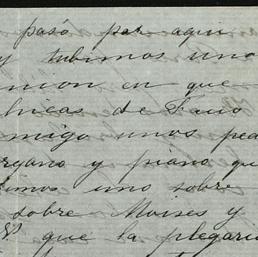 pasó por aqui
y tubimos uno
nion en que
hicas de Fauo
migo unos ped
rgano y piano qu
imos uno sobre
sobre Moises y
que la plegari